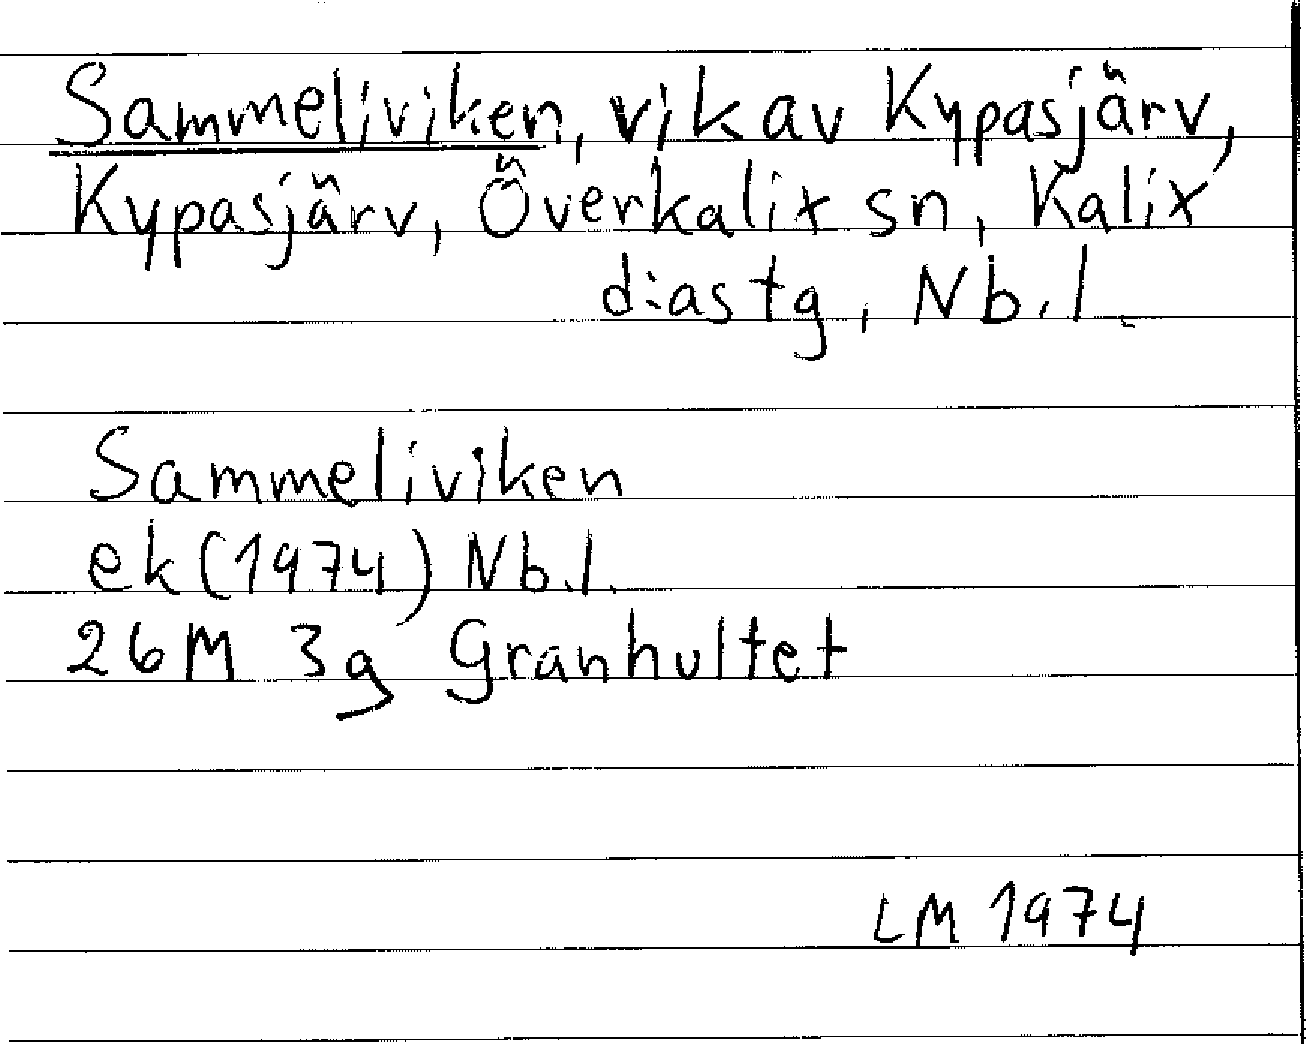 Sammeliviken, vik av Kypasjärv,
Kypasjärv, Överkalix sn, Kalix
d:as tg, Nb.l.
Sammeliviken
ek (1974) Nb.l.
26M 3g Granhultet
LM 1974